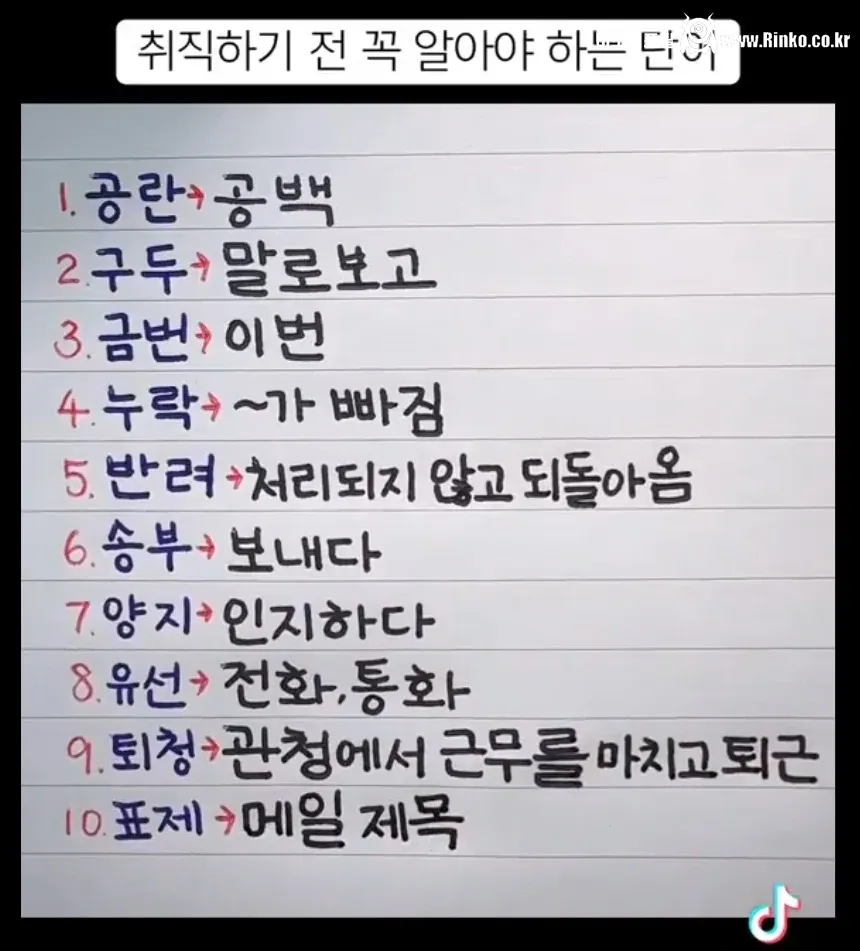 취직하기 전 꼭 알아야 하는 단어
www.Rinko.co.kr
1. 공란→공백
2. 구두→말로보고
3. 금번→이번
4. 누락→~가 빠짐
5. 반려→처리되지 않고 되돌아옴
6. 송부→보내다
7. 양지→인지하다
8. 유선→전화, 통화
9. 퇴청→관청에서 근무를 마치고 퇴근
10. 표제→메일 제목